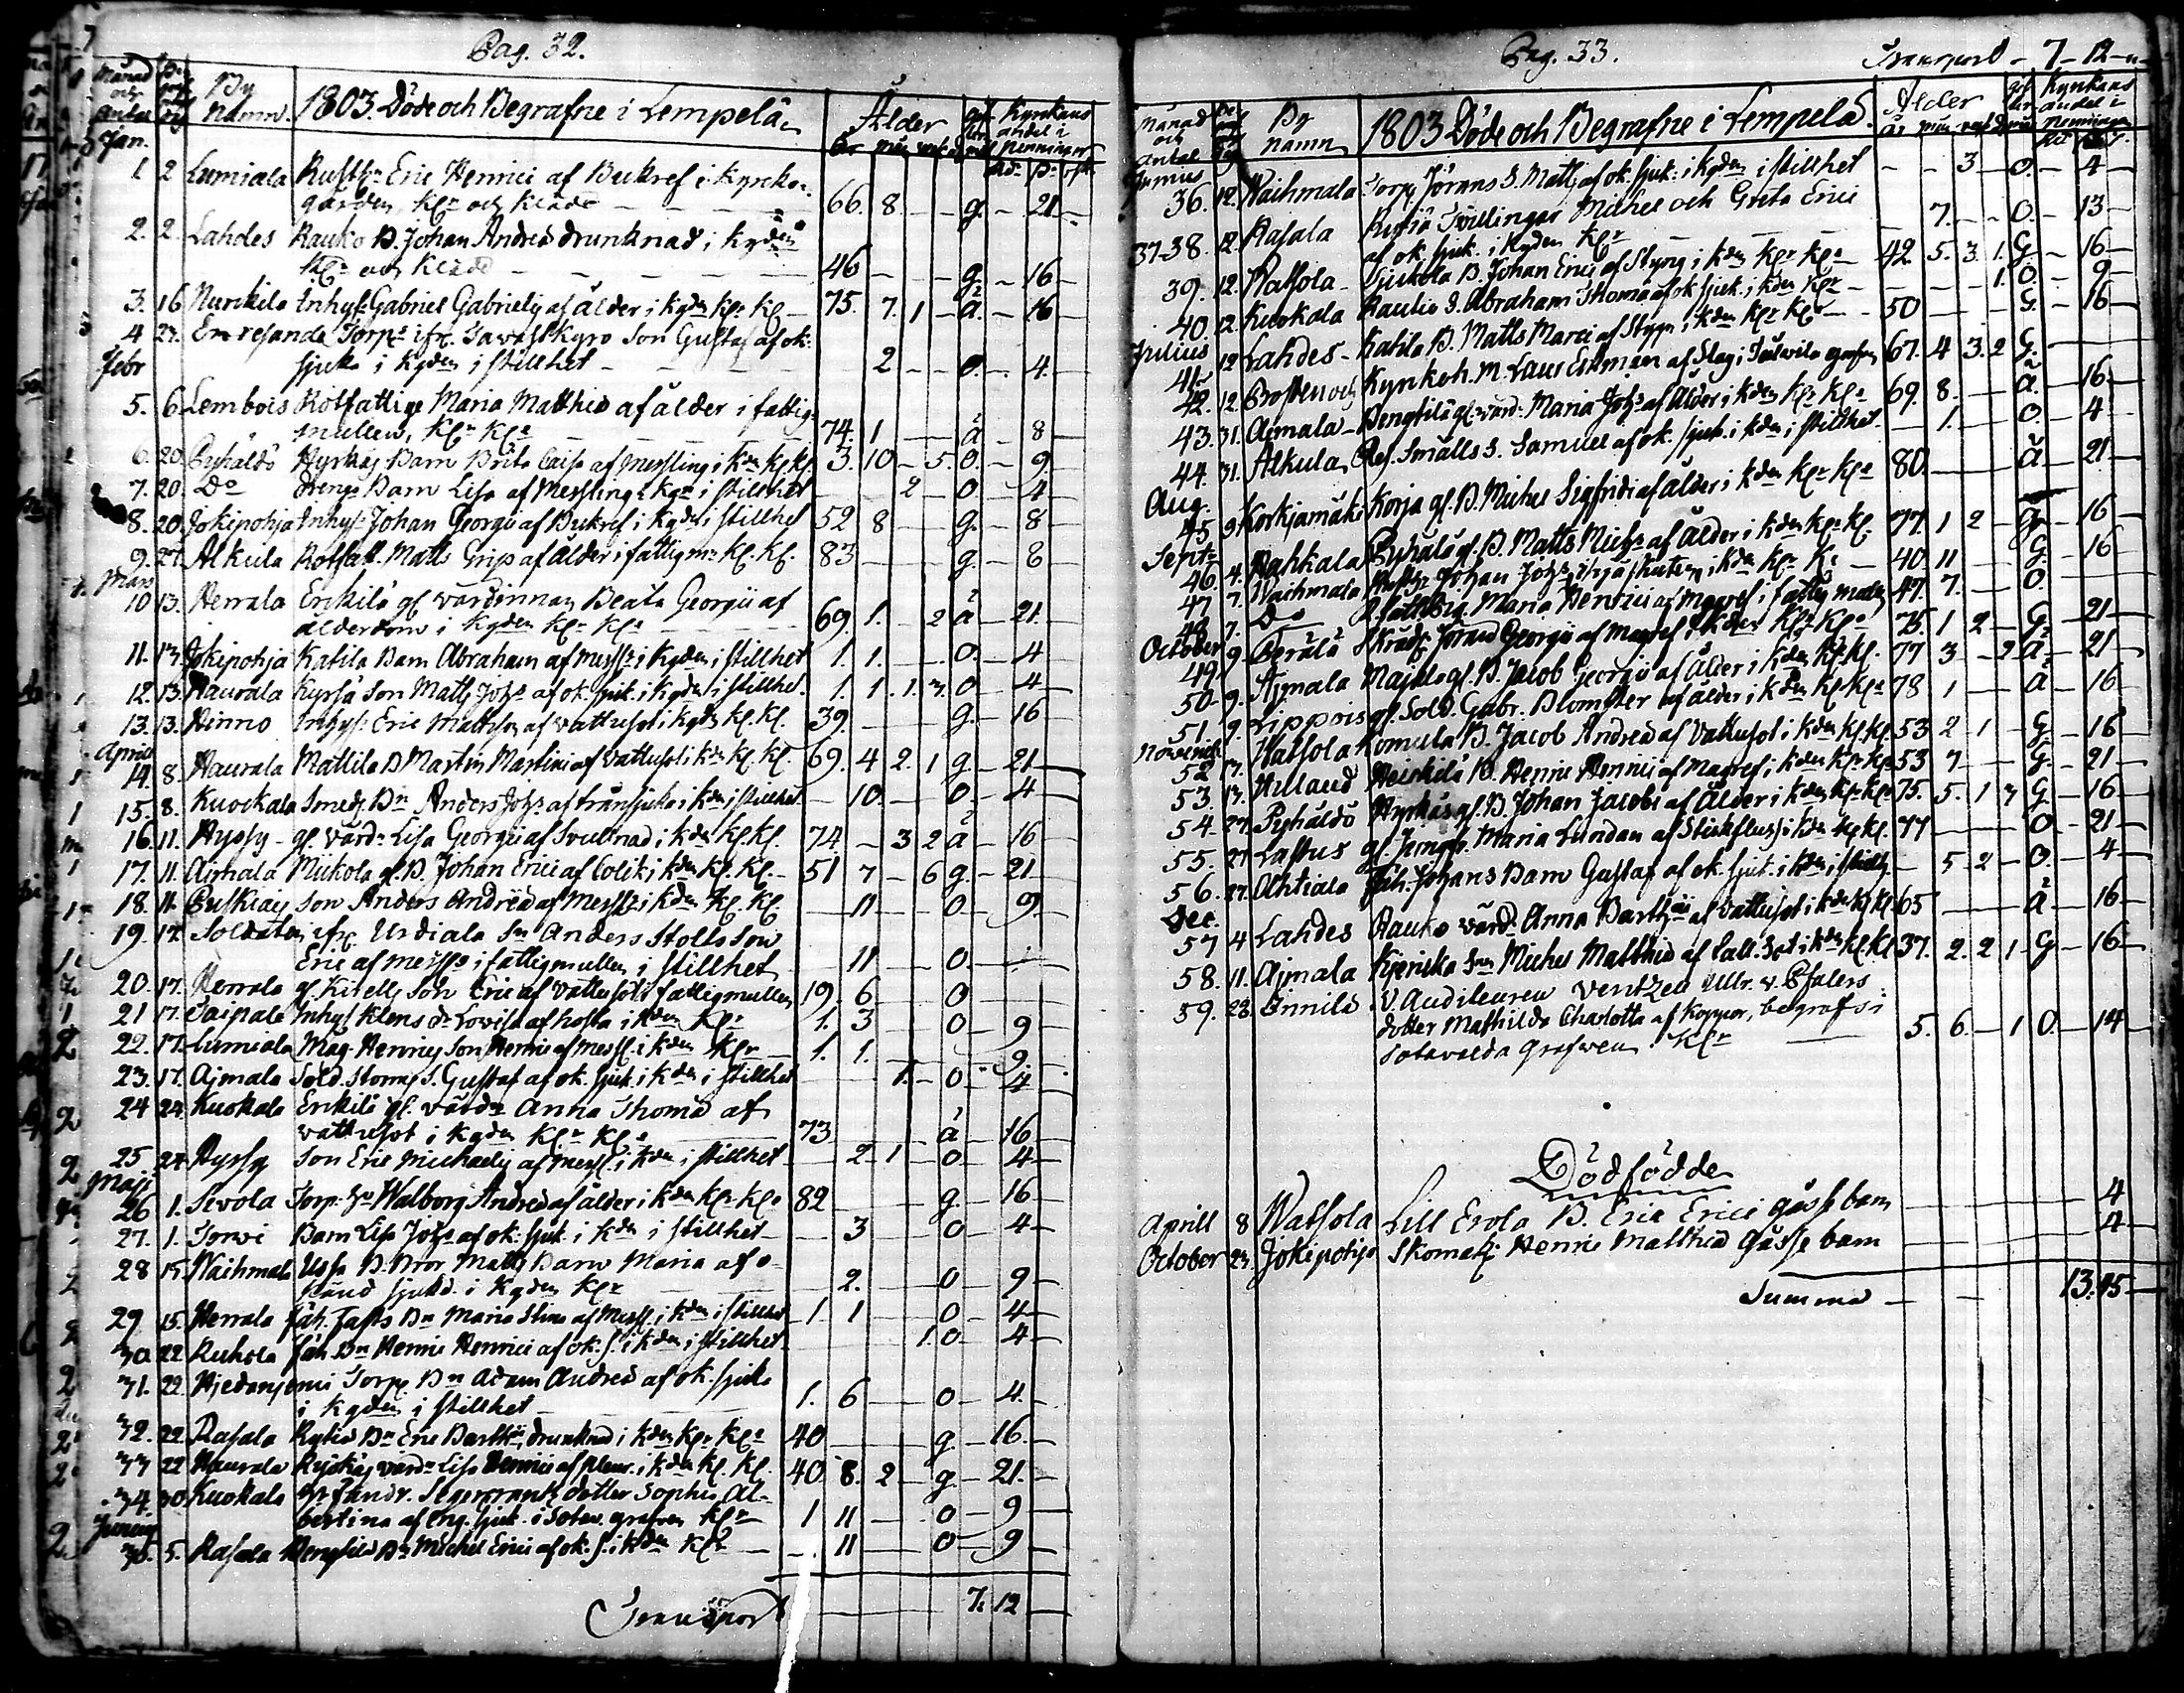 Pag. 32.
Månad och Antal By Namn. 1803. Döde och Begrafne i Lempelä Ålder Kyrkans andel i penningar
Jan.
1. 2 Lumiala Rusth:r Eric Henrici af Bukref i Kyrko-
gården, Kl:r och Kläde 66. 8. g. 21
2. 2. Lahdes Rauko B. Johan Andreæ drunknad i Kgden
Kl:r och Kläde 46 g. 16
3. 16 Nurckila Inhys: Gabriel Gabrielis af ålder i Kgden Kl:r Kl. 75. 7. 1 a. 16
4 23. En resande Torp:r ifr. Tavastkyro Son Gustaf af ok:
Febr sjuka i Kgden i stillhet 2 0. 4.
5. 6. Lembois Rotfattige Maria Matthiæ af ålder i fattig-
mullen, Kl:r Kl:e 74. 1 å 8
6. 20. Pyhäldö Hyrkäs Barn Brita Caisa af Messling i Kden Kl. Kl. 3. 10 5. 0. 9
7. 20. D:o drengs Barn Lisa af Messling i Kgn i stillhet 2 0 4
8. 20. Jokipohja Inhys: Johan Georgii af Bukref i Kgden i stillhet 52 8 g. 8
9. 27. Alkula Rotfatt. Matts Grips af ålder i fattigm: Kl. Kl. 83 g. 8
Mars
10 13. Herrala Erckilä gl. värdinnan Beata Georgii af
ålderdom i Kgden Kl:r Kl:e 69. 1. 2 å 21.
11. 13 Jokipohja Katila Barn Abraham af Messl: i Kgden i stillhet 1. 1. 0. 4
12. 13. Haurala Kyrsä Son Matts Joh:s af ok. sjuk. i Kgden i stillhet. 1. 1. 1. 3. 0 4
13. 13. Hinno Inhys: Eric Mattsson af Vattusot i Kgdn Kl. Kl. 39. g. 16
April
14. 8. Haurala Mattila B Martin Martini af Vattusot i Kdn Kl. Kl. 69. 4 2. 1 g. 21
15. 8. Kuockala Smeds B:n Anders Joh:s af trånsjuka i Kdn i stillhet. 10. 0. 4
16. 11. Hyssy gl. Värd:n Lisa Georgii af Svullnad i Kdn Kl. Kl. 74. 3 2 å 16
17. 11. Ajmala Mickola gl. B. Johan Erici af Colik i Kdn Kl. Kl. 51 7 6 g. 21
18. 11. Puskiais Son Anders Andreæ af Messl: i Kdn Kl. Kl. 11 0 9
19. 17. Soldaten ifr. Urdiala S:n Anders Stolls Son
Eric af Messl: i fattigmullen i stillhet 11 0.
20. 17. Herrala gl. Kirells Son Eric af Vattusot i fattigmullen 19. 6 0
21 17. Saipala Inhys Klens d:r Lovisa af hosta i Kden Kl:r 1. 3 0 9
22. 17. Lumiala Mag. Henrics Son Henric af Messl. i Kden Kl:r 1. 1. 9.
23. 17. Ajmala Sold. Storms S. Gustaf af ok. sjuk. i Kden i stillhet 1. 0 4
24 24. Kuokala Erikilä gl. värd:n Anna Thomæ af
vattusot i Kgden Kl:r Kl:e 73 å 16
25 24. Hyssy Son Eric Michaelis af Messl. i Kden i stillhet 2 1 0 4
Maji
26 1. Sevola Torp: Hu Walborg Andreæ af ålder i Kden Kl:r Kl:e 82 g. 16
27. 1. Torvi Barn Lisa Joh:s af ok. sjuk. i Kden i stillhet 3 0 4
28 15. Wachmala Ussa B. Bror Matts Barn Maria af o-
känd sjukd. i Kgden Kl:r 2. 0 9
29 15. Herrala Jäh. Fasts B:n Maria Stina af Messl. i Kden i stillhet 1 1 0 4
30 22 Kuhola Jäh B:n Henric Henrici af ok. s. i Kden i stillhet 1. 0 4
31. 22. Hjedanjemi Torp. B:n Adam Andreæ af ok. sjuka
i Kgden i stillhet 1. 6 0 4.
32. 22. Rasala Kykiö B:n Eric Barthi, drunknad i Kden Kl:r Kl:e 40 g. 16.
33 22 Haurala Ryökäs värd:n Lisa Henrici af Pleur. i Kden Kl. Kl. 40 8. 2 g. 21.
34. 30. Kuokala H:r Fändr. Segercrantz dotter Sophia Al-
bertina af eng. sjuk. i Sotav. grafven Kl:r 1 11 0 9
Junius
35. 5. Rasala Bengtilä B:n Michel Erici af ok. s. i Kden Kl:r 11 0 9
Transport 7. 12
Pag. 33. Transport 7 12
Månad och Antal By Namn 1803 Döde och Begrafne i Lempelä. Ålder Kyrkans andel i Penningar
Junius
36. 12. Waihmala Torp. Jörans S. Matts af ok. sjuk: i Kgden i stillhet 3 0. 4
37-38. 12. Rasala Kyrsiö Tvillingar Michel och Greta Erici
af ok. sjuk. i Kgden Kl:r 7. 0. 13
39. 12. Watsola Sjuckola B. Johan Erici af Styng i Kden Kl:r Kl:e 42 5. 3. 1. g. 16
40. 12 Kuokala Raulio S. Abraham Thomæ af ok sjuk. i Kden Kl:r 1. 0. 9
Julius
41. 12 Lahdes Katila B. Matts Marci af Stygn i Kden Kl:r Kl:e 50 G. 16
42. 12. Prosten och Kyrkoh. M. Laur. Eckman af Slag i Sotavala grafven 67. 4 3. 2 G.
43. 31. Ajmala Bengtilä gl. värd: Maria Joh:s af ålder i Kden Kl:r Kl:e 69. 8. å. 16
44. 31. Alkula Ref. Smålls S. Samuel af ok. sjuk. i Kden i stillhet 1. 0. 4
Aug.
45 9 Korkjamäki Korja gl. B. Michel Sigfridi af ålder i Kden Kl:r Kl:e 80. å 21
Sept:r
46. 4. Hahkala Pyhälä gl. B. Matts Mich:s af Ålder i Kden Kl:r Kl. 77. 1 2 g. 16
47 7. Waihmala Rusth:r Johan Joh:s ihjälskuten i Kden Kl:r Kl 40 11 G. 16
48 7. D:o Maria Henrici af Magref i fattig mullen 47. 7. 0.
October
49. 9. Perälä Skrädd: Jöran Georgii af Magref i Kden Kl:r Kl:e 75. 1 2 G. 21
50. 9. Ajmala Majkla gl. B. Jacob Georgii af Ålder i Kden Kl:r Kl. 77 3 2 å 21
51. 9. Lippois gl. Sold. Gabr. Blomster af ålder i Kden Kl Kl:e 78 1 å 16
November
52. 13. Watsola Komula B. Jacob Andreæ af Vattusot i Kden Kl Kl. 53 2 1 G. 16
53. 13. Hilland Heickilä B. Henric Henrici af Magref i Kden Kl:r Kl 53 7 G. 21
54. 27. Pyhäldö Hyrkäs gl. B. Johan Jacobi af Ålder i Kden Kl:r Kl:e 75. 5. 1 3 G. 16
55. 27 Lastus gl. Jungfr. Maria Lundan af Stickfluss i Kden Kl. Kl. 77 0 21
56. 27. Achtiala Jäh. Johans Barn Gustaf af ok. sjuk. i Kden i stillh. 5 2 0. 4
Dec.
57 4 Lahdes Rauko värd: Anna Barthii af Vattusot i Kden Kl Kl 65 å 16
58. 11. Ajmala Kjericka S:n Michel Matthiæ af Lall. Sot i Kden Kl Kl 37. 2. 2 1 G 16
59. 28. Innilä V. Auditeuren
dotter Mathilda Charlotta af Koppor, begrafs i
Sotavalda grafven. Kl:r 5. 6. 1 0. 14
Dödfödde
Aprill 8 Watsola Lill Erola B. Eric Erici gåsse barn 4
October 23. Jokipohja Skomak: Henric Matthiæ Gåsse barn 4
Summa 13. 15